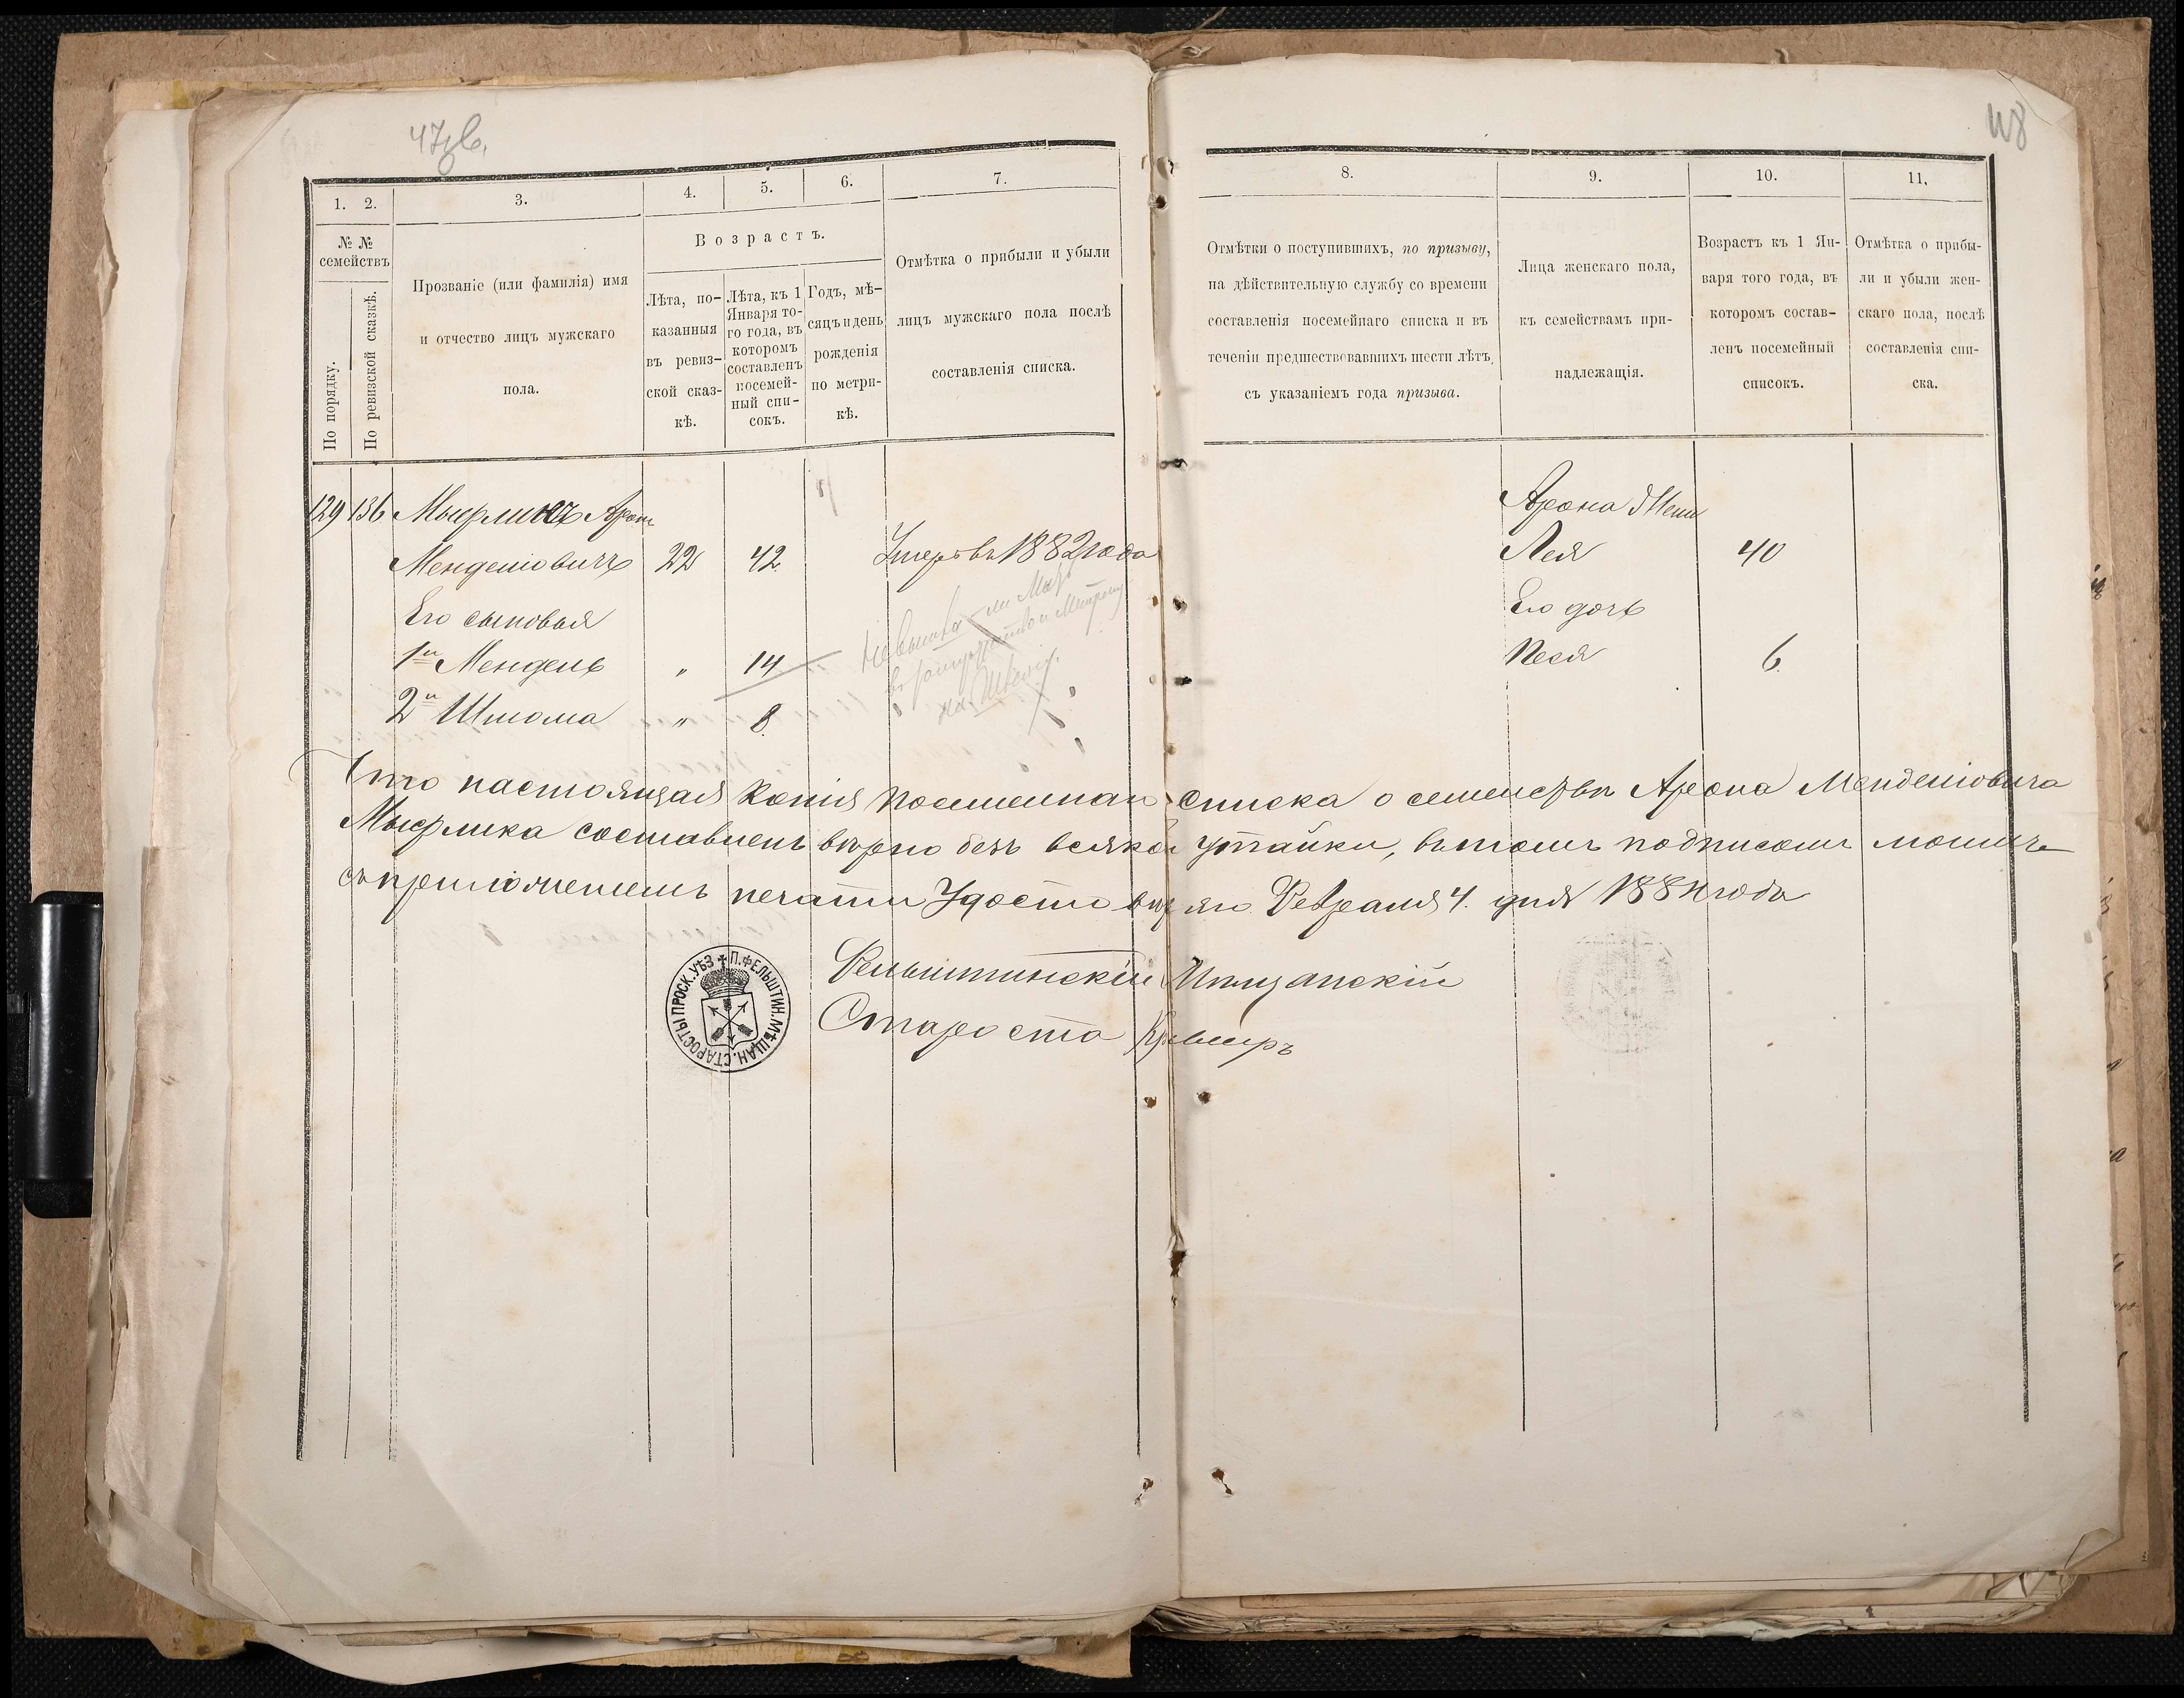 47об.
48
1. 2. 3. 4. 5. 6. 7.
8. 9. 10. 11.
№ №
семействъ
По порядку.
По ревизской сказкѣ.
Прозваніе (или фамилія) имя
и отчество лицъ мужскаго
пола.
Возрастъ.
Лѣта, по-
казанныя
въ ревиз-
ской сказ-
кѣ.
Лѣта, къ 1
Января то-
го года, въ
которомъ
составленъ
посемей-
ный спи-
сокъ.
Годъ, мѣ-
сяцъ и день
рожденія
по метри-
кѣ.
Отмѣтка о прибыли и убыли
лицъ мужскаго пола послѣ
составленія списка.
Отмѣтки о поступившихъ, по призыву,
на дѣйствительную службу со времени
составленія посемейнаго списка и въ
теченіи предшествовавшихъ шести лѣтъ,
съ указаніемъ года призыва.
Лица женскаго пола,
къ семействамъ при-
надлежащія.
Возрастъ къ 1 Ян-
варя того года, въ
которомъ состав-
ленъ посемейный
списокъ.
Отмѣтка о прибы-
ли и убыли жен-
скаго пола, послѣ
составленія спи-
ска.
129 136 Арон
Менделіовичъ 22 42 Умеръ въ 1882 года
Его сыновья
1й Мендель " 14
2й Шлома " 8.
Арона жена
Лея 40
Его дочь
Песя 6.
Что настоящая копія посемейнаго списка о семействѣ Арона Менделіовича
составленъ вѣрно безъ всякой утайки, въ томъ подписомъ моимъ
съ приложеніемъ печати Удостовѣряю. Февраля 4. дня года
Фельштинскій Мѣщанскій
Староста
П. ФЕЛЬШТИН. МѢЩАН. СТАРОСТЫ ПРОСК. УѢЗ